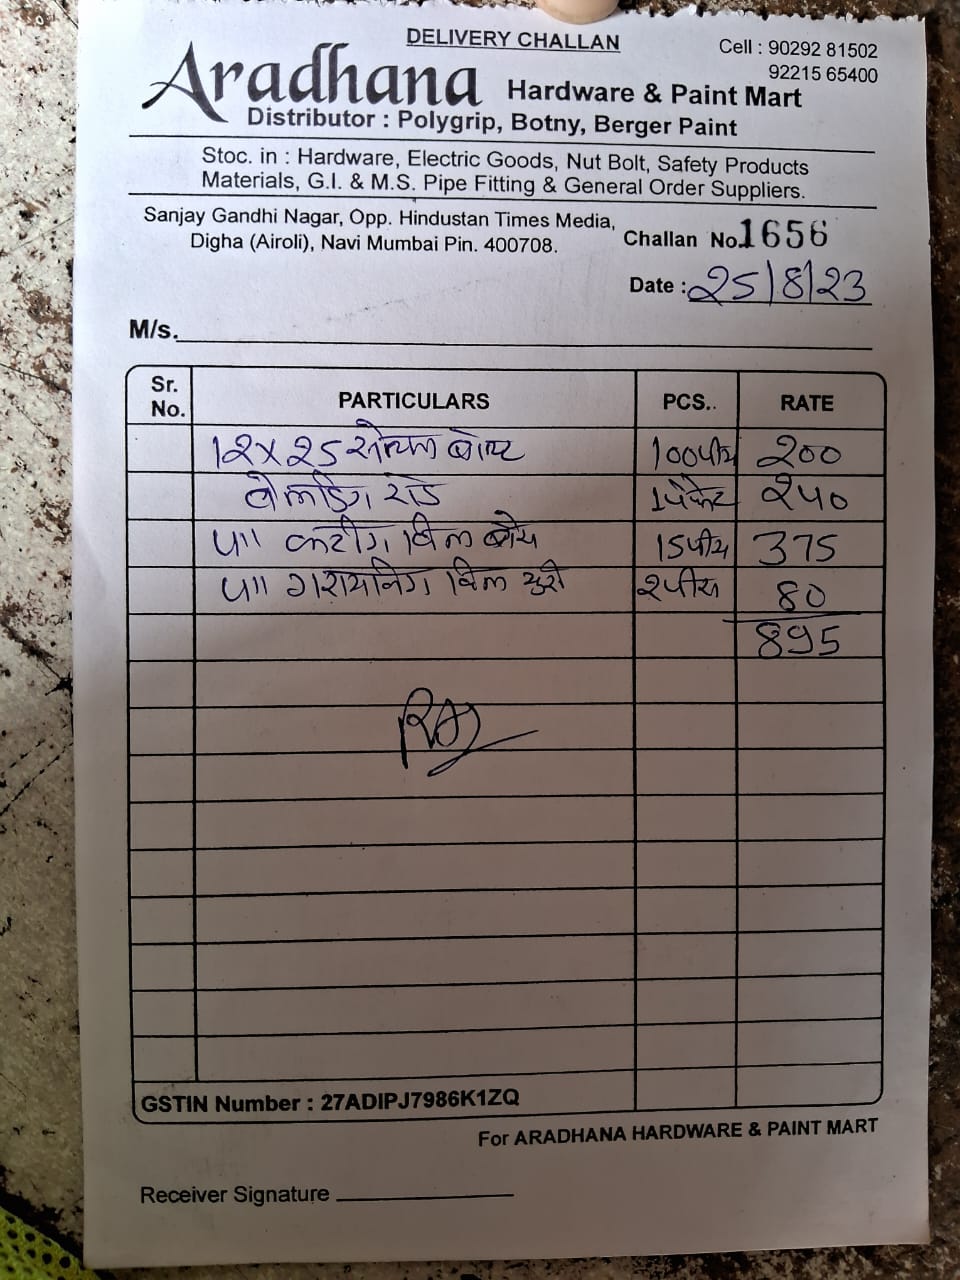 DELIVERY CHALLAN
Cell : 90292 81502
92215 65400
Aradhana Hardware & Paint Mart
Distributor : Polygrip, Botny, Berger Paint
Stoc. in : Hardware, Electric Goods, Nut Bolt, Safety Products
Materials, G.I. & M.S. Pipe Fitting & General Order Suppliers.
Sanjay Gandhi Nagar, Opp. Hindustan Times Media,
Digha (Airoli), Navi Mumbai Pin. 400708.
Challan No. 1656
Date : 25/8/23
M/s.
Sr. No. PARTICULARS PCS.. RATE
12x25 बोल्ट 100पीस 200
वेलडिंग रोड 1पेकेट 240
५॥ कटींग विल बोस 15पीस 375
५॥ गरायनिग विल युरी 2पीस 80
895
GSTIN Number : 27ADIPJ7986K1ZQ
For ARADHANA HARDWARE & PAINT MART
Receiver Signature